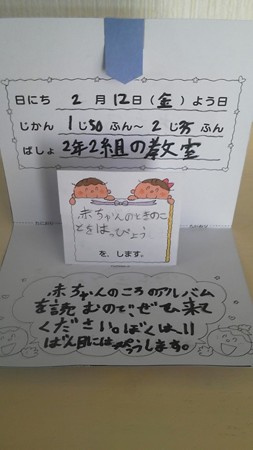 日にち 2月12日（金）よう日
じかん 1じ50ふん～2じ35ふん
ばしょ 2年2組の教室
赤ちゃんのときのこ
とをはっぴょう
を、します。
赤ちゃんのころのアルバム
を読むのでぜひ来て
ください。ぼくは11
ばん目にはっぴょうします。